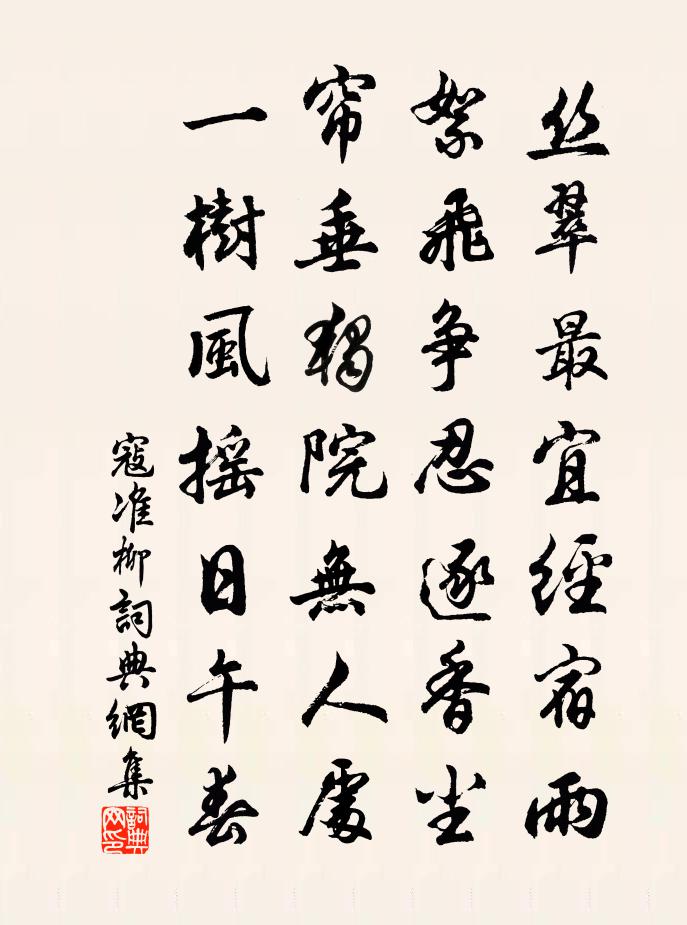 丝翠最宜經宿雨
絮飛争忍逐香尘
帘垂獨院無人處
一樹風摇日午春
寇准柳詞典網集
詞典网印